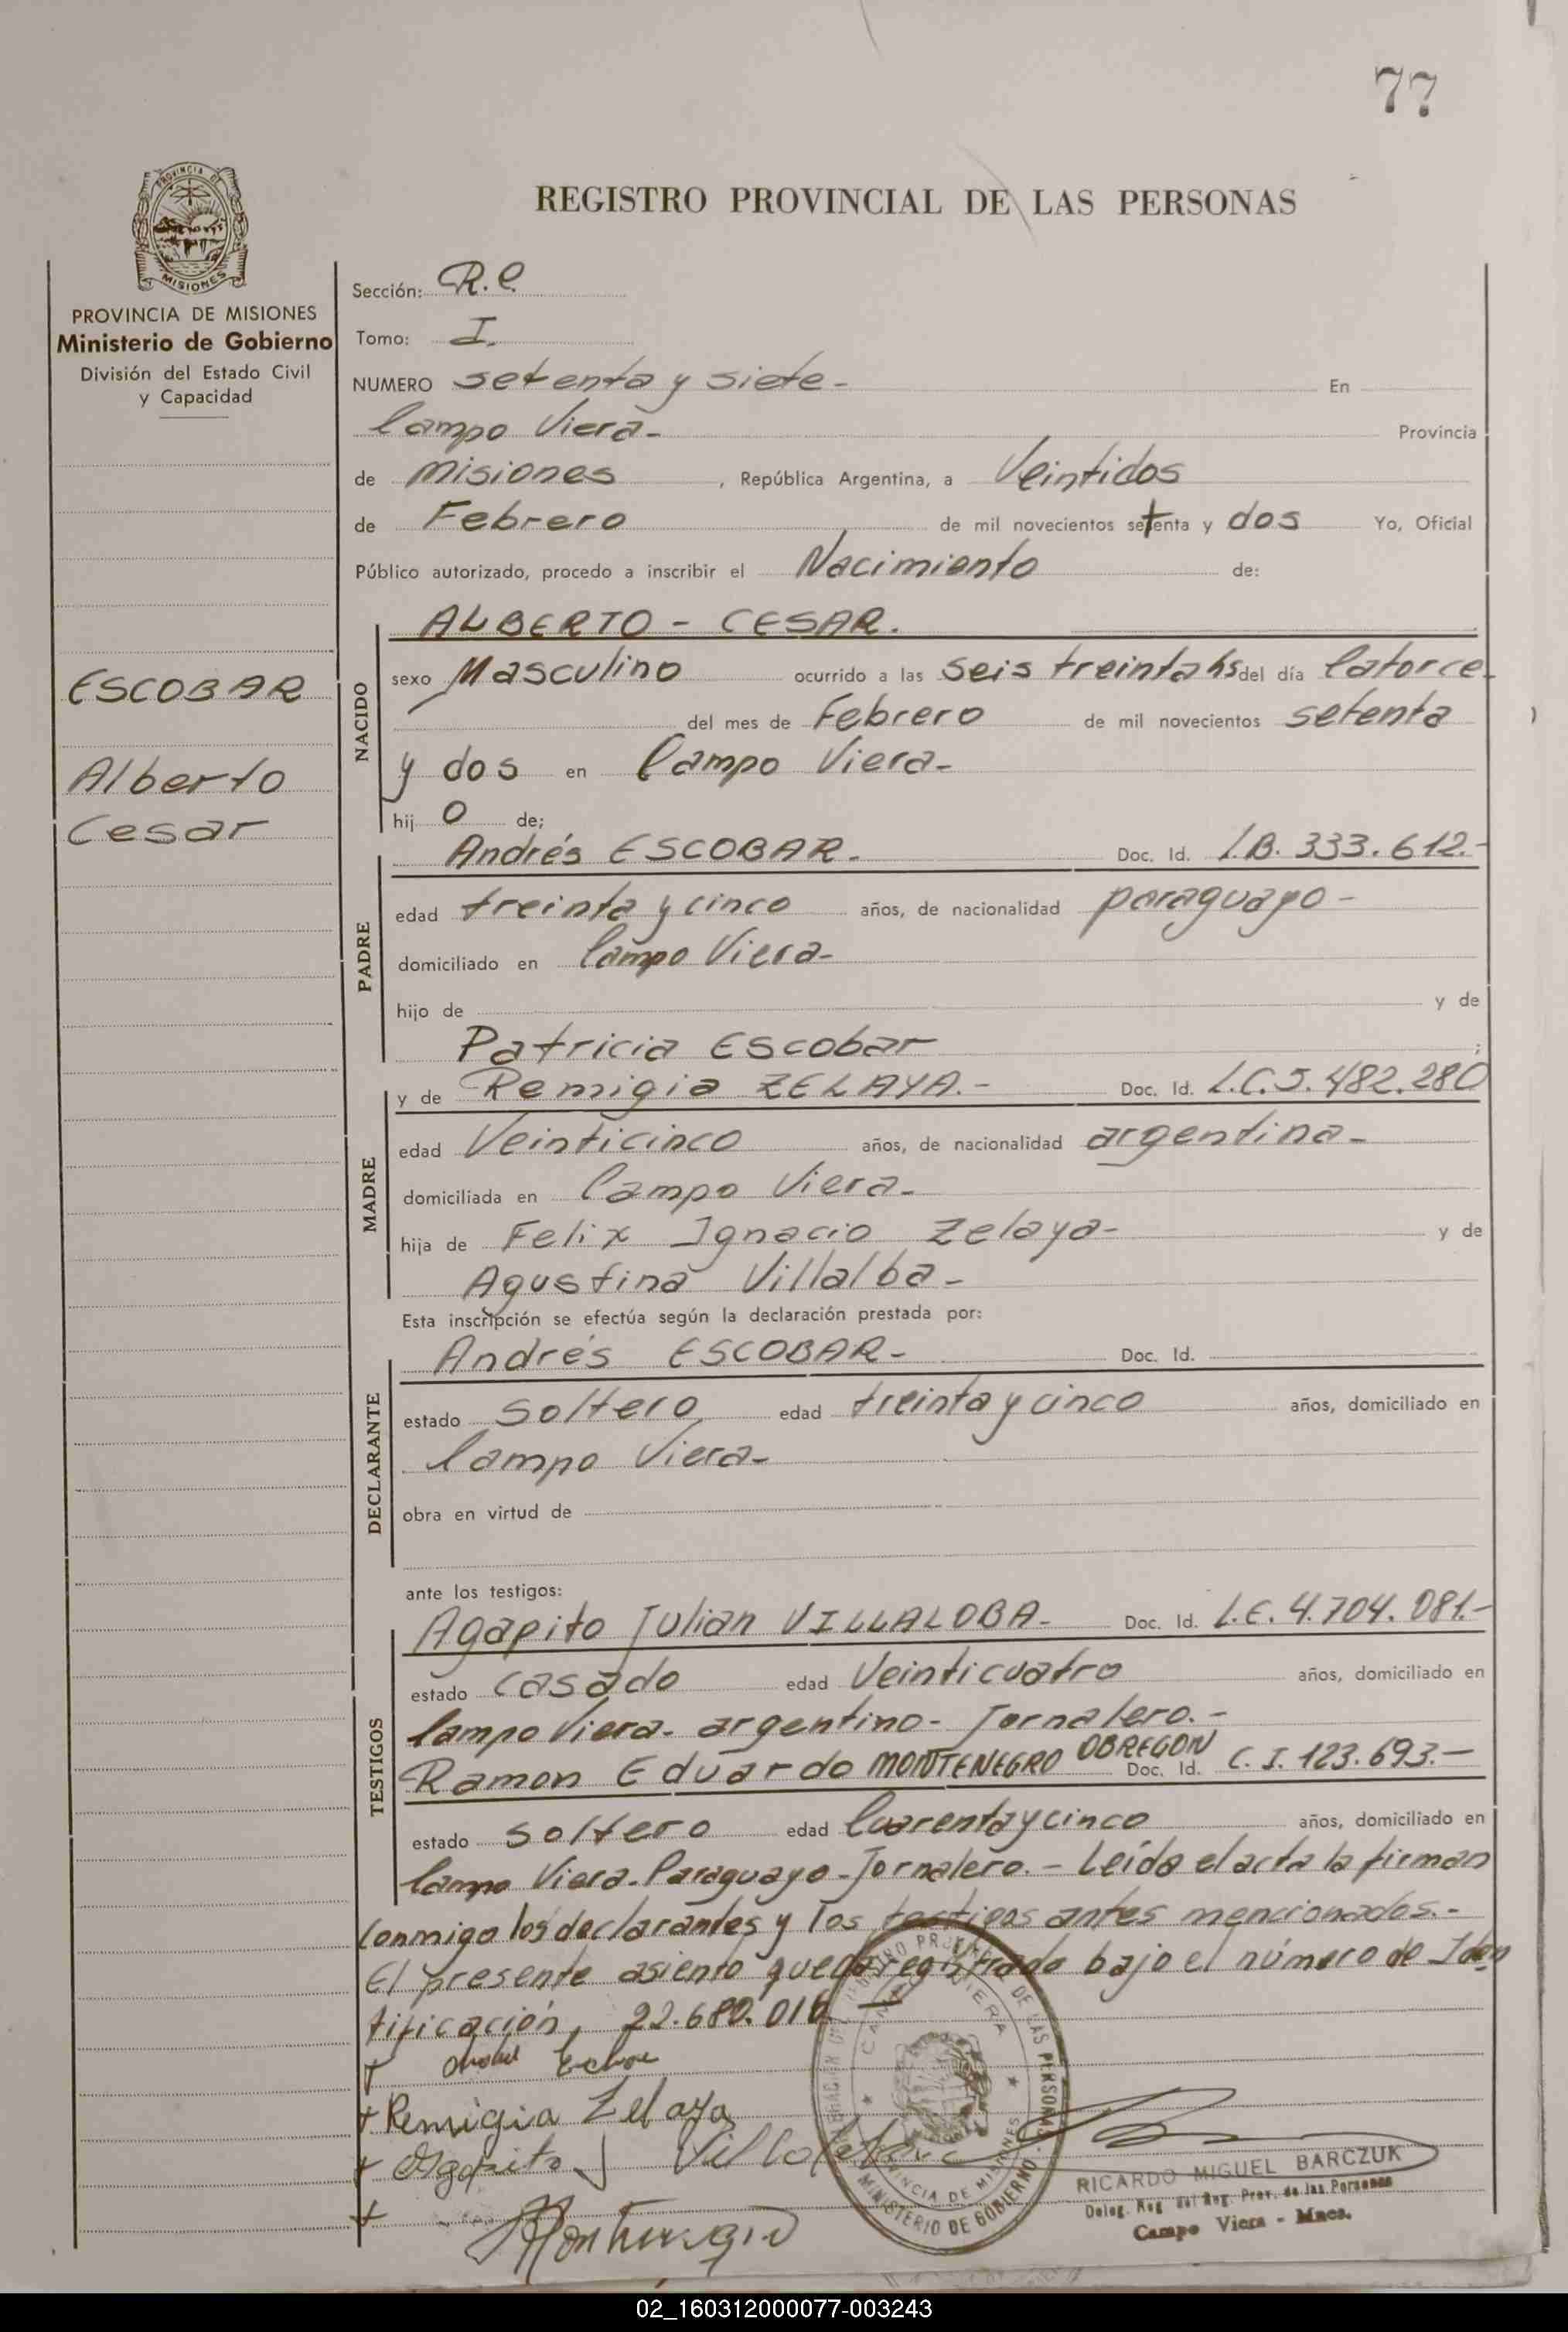 77
PROVINCIA DE
MISIONES
REGISTRO PROVINCIAL DE LAS PERSONAS
PROVINCIA DE MISIONES
Ministerio de Gobierno
División del Estado Civil
y Capacidad
ESCOBAR
Alberto
Cesar
Sección: R.C.
Tomo: I.
NUMERO setenta y siete- En
Campo Viera- Provincia
de Misiones, República Argentina, a Veintidos
de Febrero de mil novecientos setenta y dos Yo, Oficial
Público autorizado, procedo a inscribir el Nacimiento de:
NACIDO
ALBERTO - CESAR.
sexo Masculino ocurrido a las seis treinta hs del día Catorce-
del mes de Febrero de mil novecientos setenta
y dos en Campo Viera-
hij o de;
PADRE
Andrés ESCOBAR.- Doc. Id. 333.612.-
edad treinta y cinco años, de nacionalidad paraguayo-
domiciliado en Campo Viera-
hijo de y de
Patricia Escobar ;
MADRE
y de Remigia ZELAYA.- Doc. Id. L.C.5.482.280
edad Veinticinco años, de nacionalidad argentina-
domiciliada en Campo Viera-
hija de Felix Ignacio Zelaya- y de
Agustina Villalba-
Esta inscripción se efectúa según la declaración prestada por:
DECLARANTE
Andrés ESCOBAR- Doc. Id.
estado soltero edad treinta y cinco años, domiciliado en
Campo Viera-
obra en virtud de
ante los testigos:
TESTIGOS
Agapito Julian VILLALOBA- Doc. Id. L.E. 4.704.081.-
estado casado edad Veinticuatro años, domiciliado en
Campo Viera- argentino- Jornalero.-
Ramon Eduardo MONTENEGRO OBREGON Doc. Id. C.I. 123.693.-
estado soltero edad Cuarenta y cinco años, domiciliado en
Campo Viera- Paraguayo- Jornalero.- Leida el acta la firman
Conmigo los declarantes y los testigos antes mencionados.-
El presente asiento queda registrado bajo el número de Iden
tificación, 22.680.016 -
Remigia Zelaya
Agapito J Villaloba
MINISTERIO DE GOBIERNO
PROVINCIA DE MISIONES
RICARDO MIGUEL BARCZUK
Deleg. Reg. del Reg. Prov. de las Personas
Campo Viera - Mnes.
02_160312000077-003243